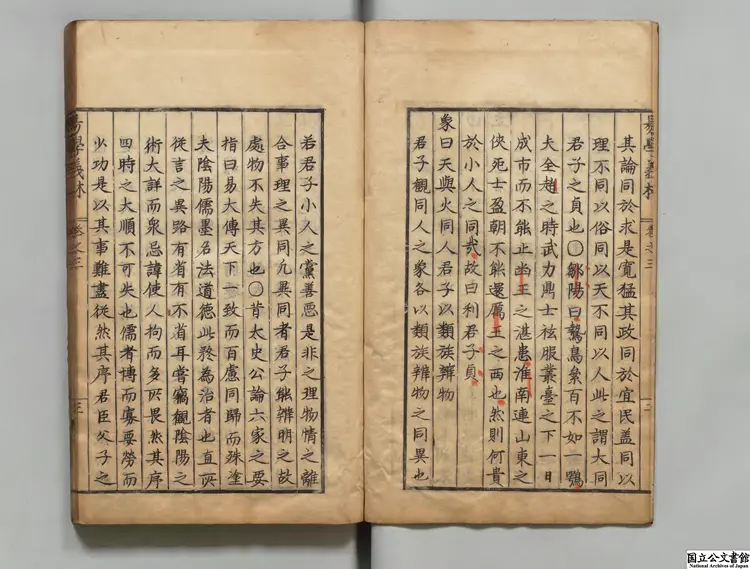 易學義林 卷之三 三
其論同於求是寬猛其政同於宜民盖同以
理不同以俗同以天不同以人此之謂大同
君子之貞也〇鄒陽曰鷙鳥絫百不如一鶚
夫全趙之時武力鼎士袨服叢臺之下一日
成市而不能止幽王之湛患淮南連山東之
俠死士盈朝不能還厲王之西也然則何貴
於小人之同哉故曰利君子貞
象曰天與火同人君子以類族辨物
君子觀同人之象各以類族辨物之同異也
若君子小人之黨善惡是非之理物情之離
合事理之異同凡異同者君子能辨明之故
處物不失其方也〇昔太史公論六家之要
指曰易大傳天下一致而百慮同歸而殊塗
夫陰陽儒墨名法道德此務為治者也直所
從言之異路有省有不省耳嘗竊觀陰陽之
術大詳而衆忌諱使人拘而多所畏然其序
四時之大順不可失也儒者博而寡要勞而
少功是以其事難盡從然其序君臣父子之
易學義林 卷之三 三
国立公文書館
National Archives of Japan